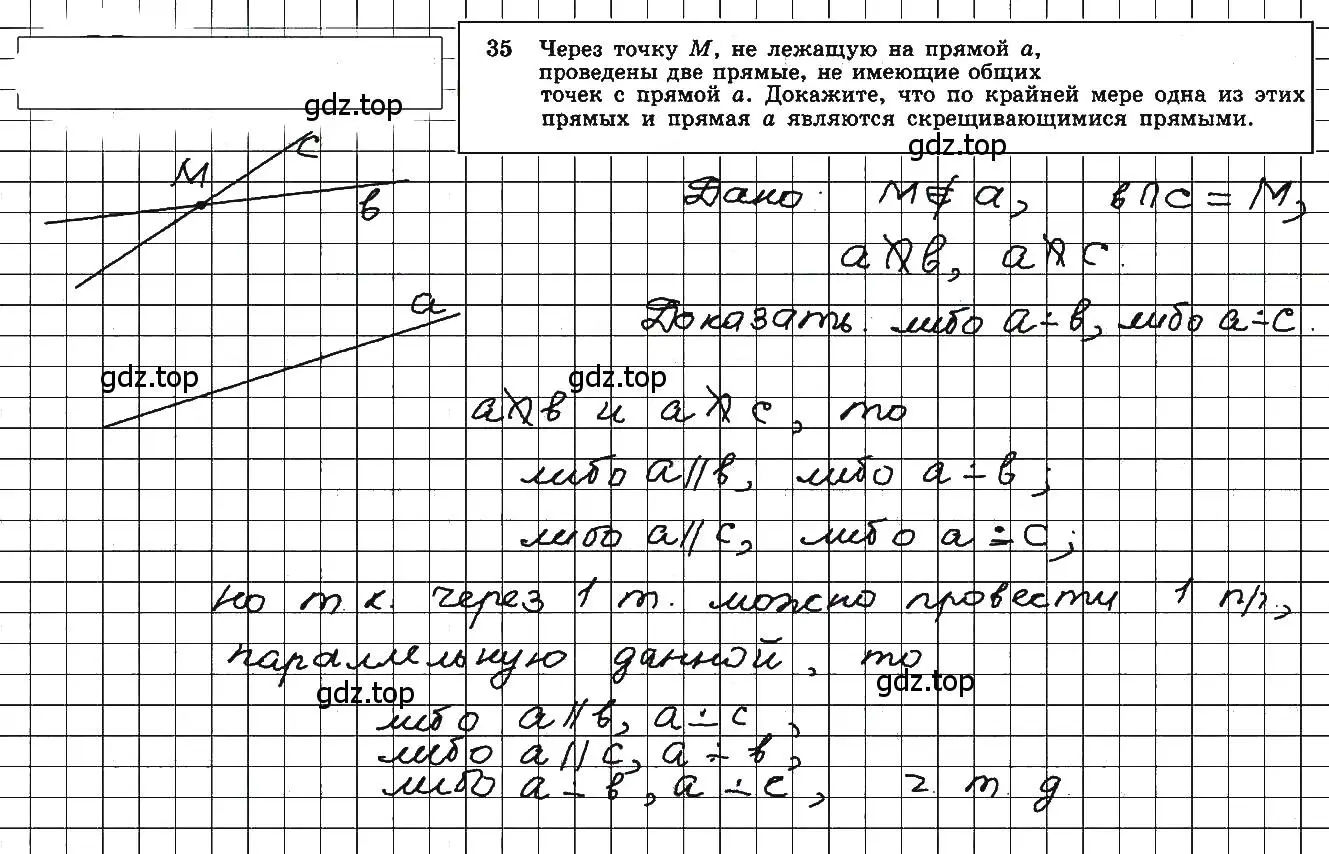 35 Через точку М, не лежащую на прямой а,
проведены две прямые, не имеющие общих
точек с прямой а. Докажите, что по крайней мере одна из этих
прямых и прямая а являются скрещивающимися прямыми.
gdz.top
gdz.top
M
c
в
a
Дано: M∉a, в∩c=M,
a∩̸в, a∩̸c.
Доказать: либо a∸в, либо a∸c.
gdz.top
gdz.top
a∩̸в и a∩̸c, то
либо a∥в, либо a∸в;
либо a∥c, либо a∸c;
но т.к. через 1 т. можно провести 1 пр.,
параллельную данной, то
gdz.top
gdz.top
либо a∥в, a∸c,
либо a∥c, a∸в,
либо a∸в, a∸c, ч.т.д